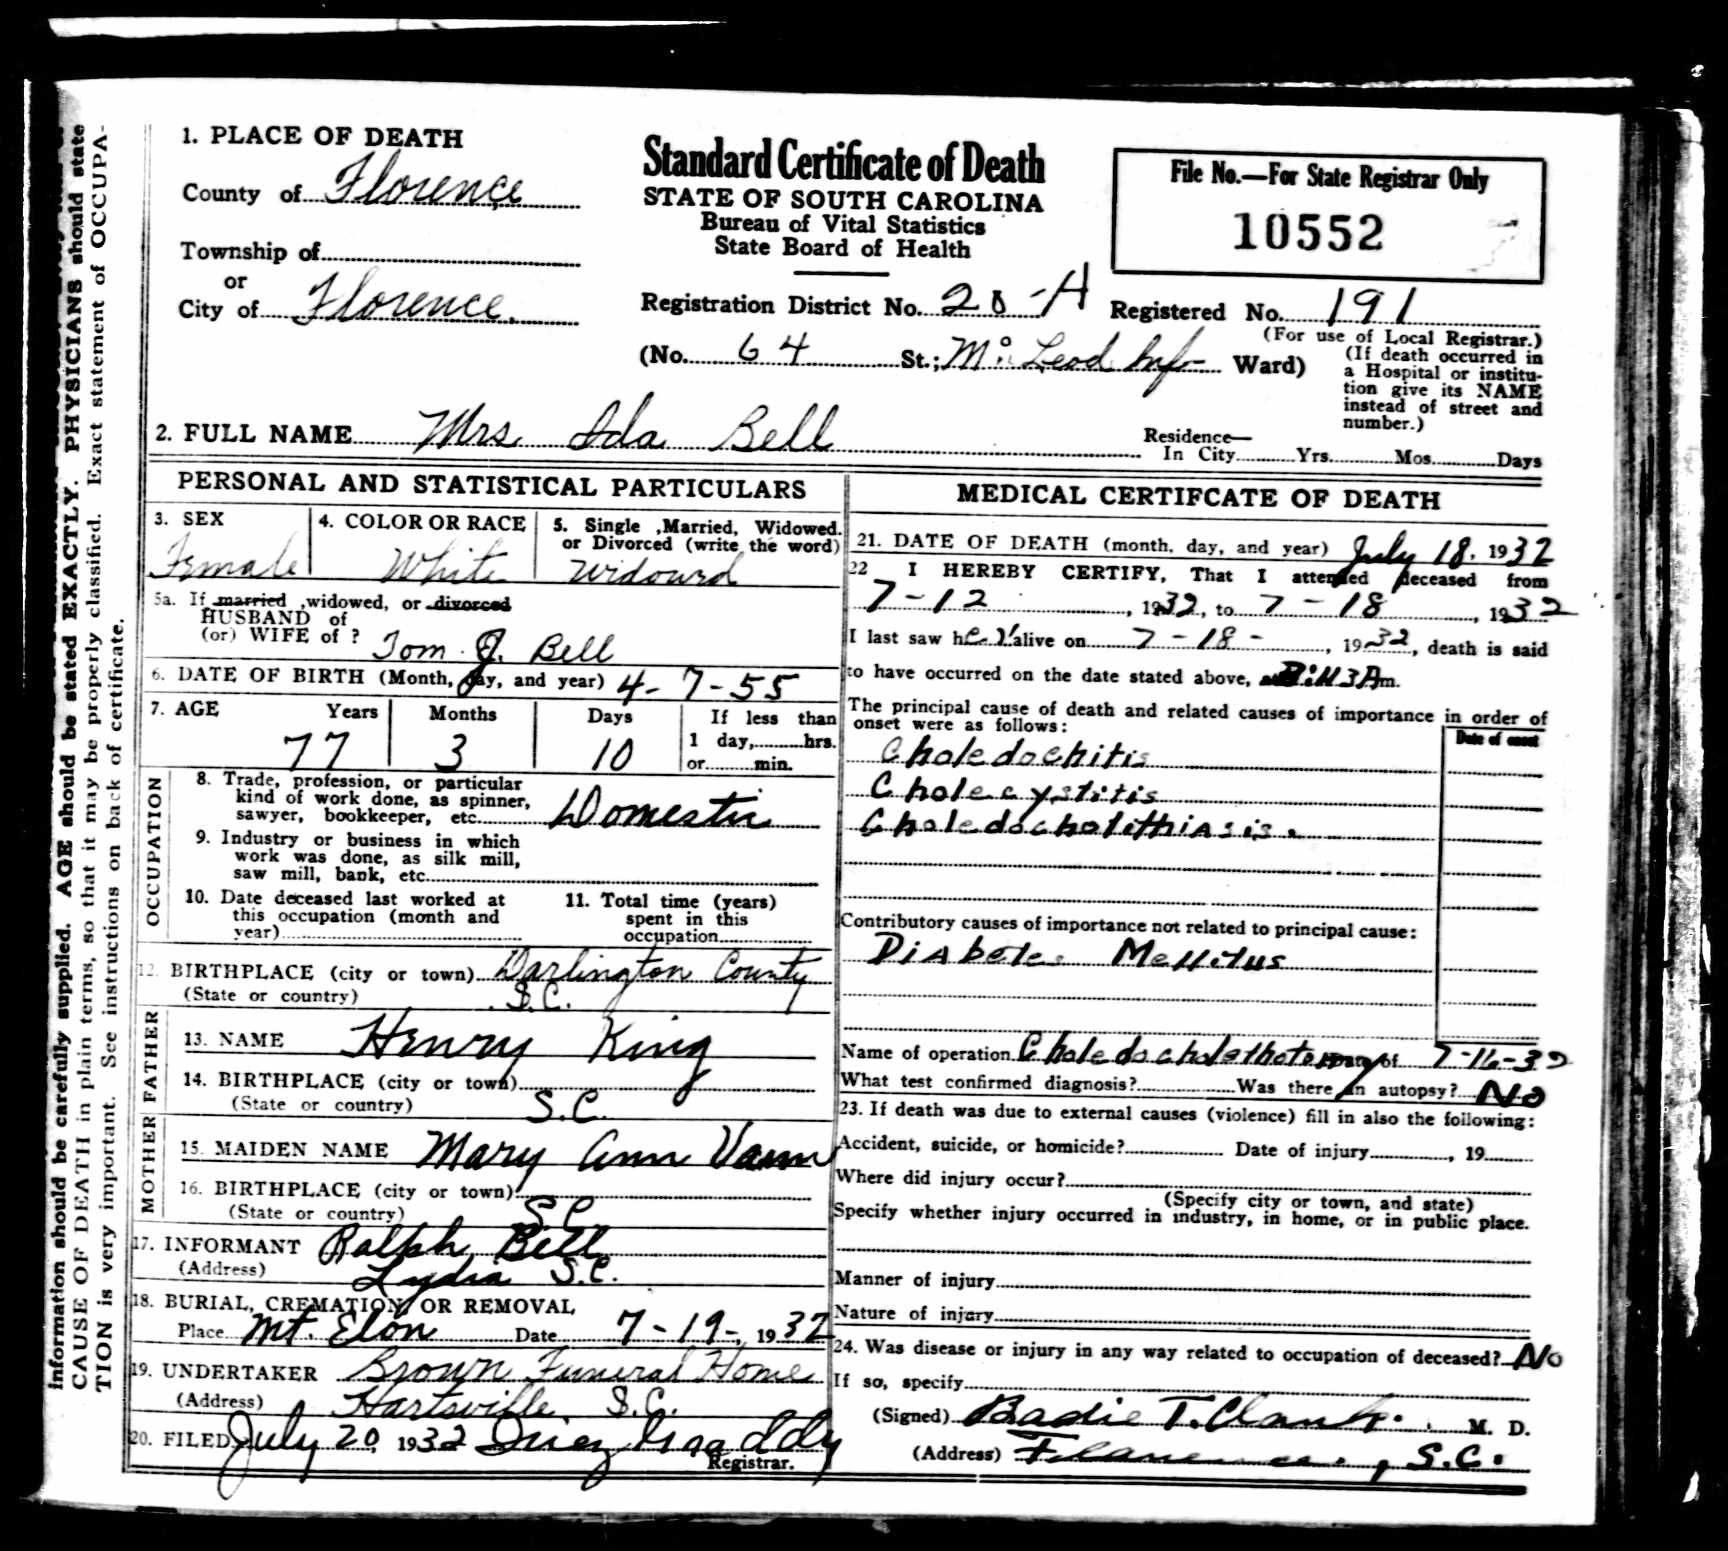 1. PLACE OF DEATH
County of Florence
Township of
or
City of Florence.
Standard Certificate of Death
STATE OF SOUTH CAROLINA
Bureau of Vital Statistics
State Board of Health
File No.—For State Registrar Only
10552
Registration District No. 20-A Registered No. 191
(For use of Local Registrar.)
(No. 64 St.; McLeod Inf- Ward)
(If death occurred in
a Hospital or institu-
tion give its NAME
instead of street and
number.)
2. FULL NAME Mrs Ida Bell
Residence—
In City Yrs. Mos. Days
PERSONAL AND STATISTICAL PARTICULARS
3. SEX
Female
4. COLOR OR RACE
White
5. Single ,Married, Widowed.
or Divorced (write the word)
Widowed
5a. If married ,widowed, or divorced
HUSBAND of
(or) WIFE of ? Tom J. Bell
6. DATE OF BIRTH (Month, day, and year) 4-7-55
7. AGE Years Months Days If less than
77 3 10 1 day, hrs.
or min.
OCCUPATION
8. Trade, profession, or particular
kind of work done, as spinner,
sawyer, bookkeeper, etc. Domestic
9. Industry or business in which
work was done, as silk mill,
saw mill, bank, etc.
10. Date deceased last worked at
this occupation (month and
year)
11. Total time (years)
spent in this
occupation
12. BIRTHPLACE (city or town) Darlington County
(State or country) S.C.
FATHER
13. NAME Henry King
14. BIRTHPLACE (city or town)
(State or country) S.C.
MOTHER
15. MAIDEN NAME Mary Ann Vann
16. BIRTHPLACE (city or town)
(State or country) S.C
17. INFORMANT Ralph Bell
(Address) Lydia S.C.
18. BURIAL, CREMATION, OR REMOVAL
Place Mt. Elon Date 7-19-, 1932
19. UNDERTAKER Brown Funeral Home
(Address) Hartsville S.C.
20. FILED July 20, 1932 Inez Graddy
Registrar.
MEDICAL CERTIFCATE OF DEATH
21. DATE OF DEATH (month, day, and year) July 18, 1932
22 I HEREBY CERTIFY, That I attended deceased from
7-12, 1932, to 7-18, 1932
I last saw her alive on 7-18-, 1932, death is said
to have occurred on the date stated above, m.
The principal cause of death and related causes of importance in order of
onset were as follows:
Date of onset
Choledochitis
Cholecystitis
Choledocholithiasis.
Contributory causes of importance not related to principal cause:
Diabetes Mellitus
Name of operation of 7-16-32
What test confirmed diagnosis? Was there an autopsy? No
23. If death was due to external causes (violence) fill in also the following:
Accident, suicide, or homicide? Date of injury , 19
Where did injury occur?
(Specify city or town, and state)
Specify whether injury occurred in industry, in home, or in public place.
Manner of injury
Nature of injury
24. Was disease or injury in any way related to occupation of deceased? No
If so, specify
(Signed) T. M. D.
(Address) Florence, S.C.
information should be carefully supplied. AGE should be stated EXACTLY. PHYSICIANS should state
CAUSE OF DEATH in plain terms, so that it may be properly classified. Exact statement of OCCUPA-
TION is very important. See instructions on back of certificate.